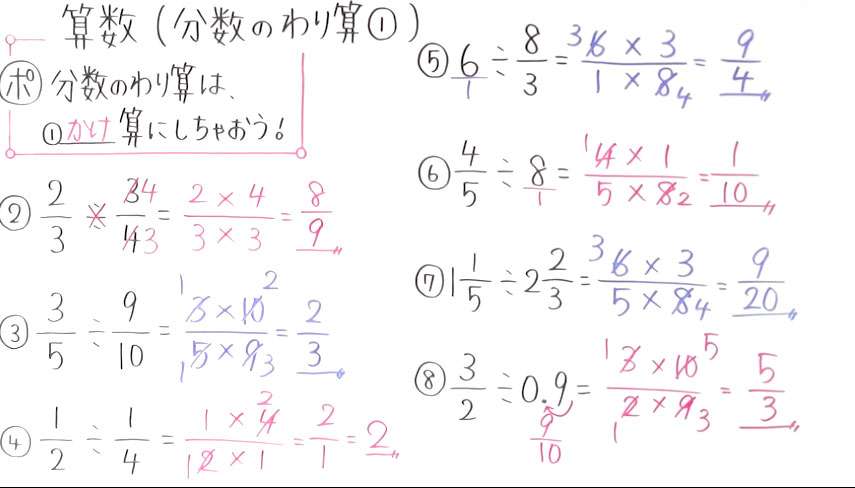 算数(分数のわり算①)
ポ 分数のわり算は、
①かけ算にしちゃおう!
② 2/3 ÷× 3/4 4/3 = 2×4/3×3 = 8/9
③ 3/5 ÷ 9/10 = 3×10/5×9 1 2 1 3 = 2/3
④ 1/2 ÷ 1/4 = 1×4/2×1 2 1 = 2/1 = 2
⑤ 6/1 ÷ 8/3 = 6×3/1×8 3 4 = 9/4
⑥ 4/5 ÷ 8/1 = 4×1/5×8 1 2 = 1/10
⑦ 1 1/5 ÷ 2 2/3 = 6×3/5×8 3 4 = 9/20
⑧ 3/2 ÷ 0.9 = 3×10/2×9 1 5 1 3 = 5/3
9/10